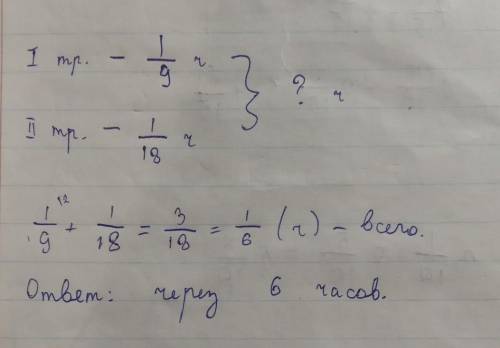 I тр. – 1/9 ч } ? ч
II тр. – 1/18 ч
1/9 ^12 + 1/18 = 3/18 = 1/6 (ч) – всего.
Ответ: через 6 часов.